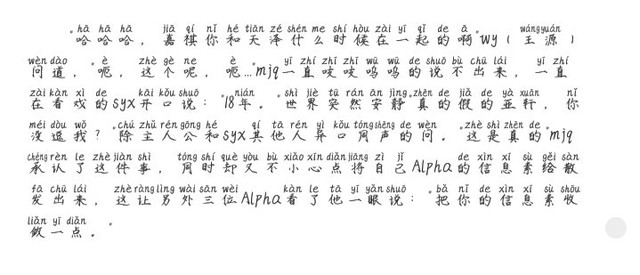 hā hā hā jiā qí nǐ hé tiān zé shén me shí hòu zài yī qǐ de ā wángyuán
"哈哈哈，嘉祺你和天泽什么时候在一起的啊"wy（王源）
wèn dào è zhè gè ne è yī zhí zhī zhī wū wū de shuō bù chū lái yī zhí
问道，"呃，这个呢，呃…"mjq一直吱吱呜呜的说不出来，一直
zài kàn xì de kāi kǒu shuō nián shì jiè tū rán ān jìng zhēn de jiǎ de yà xuān nǐ
在看戏的syx开口说："18年。"世界突然安静"真的假的亚轩，你
méi dòu wǒ chú zhǔ rén gōng hé qí tā rén yì kǒu tóng shēng de wèn zhè shì zhēn de
没逗我？"除主人公和syx其他人异口同声的问。"这是真的"mjq
chéng rèn le zhè jiàn shì tóng shí què yòu bù xiǎo xīn diǎn jiāng zì jǐ de xìn xī sù gěi sàn
承认了这件事，同时却又不小心点将自己Alpha的信息素给散
fā chū lái zhè ràng lìng wài sān wèi kàn le tā yī yǎn shuō bǎ nǐ de xìn xī sù shōu
发出来，这让另外三位Alpha看了他一眼说："把你的信息素收
liǎn yī diǎn
敛一点。"